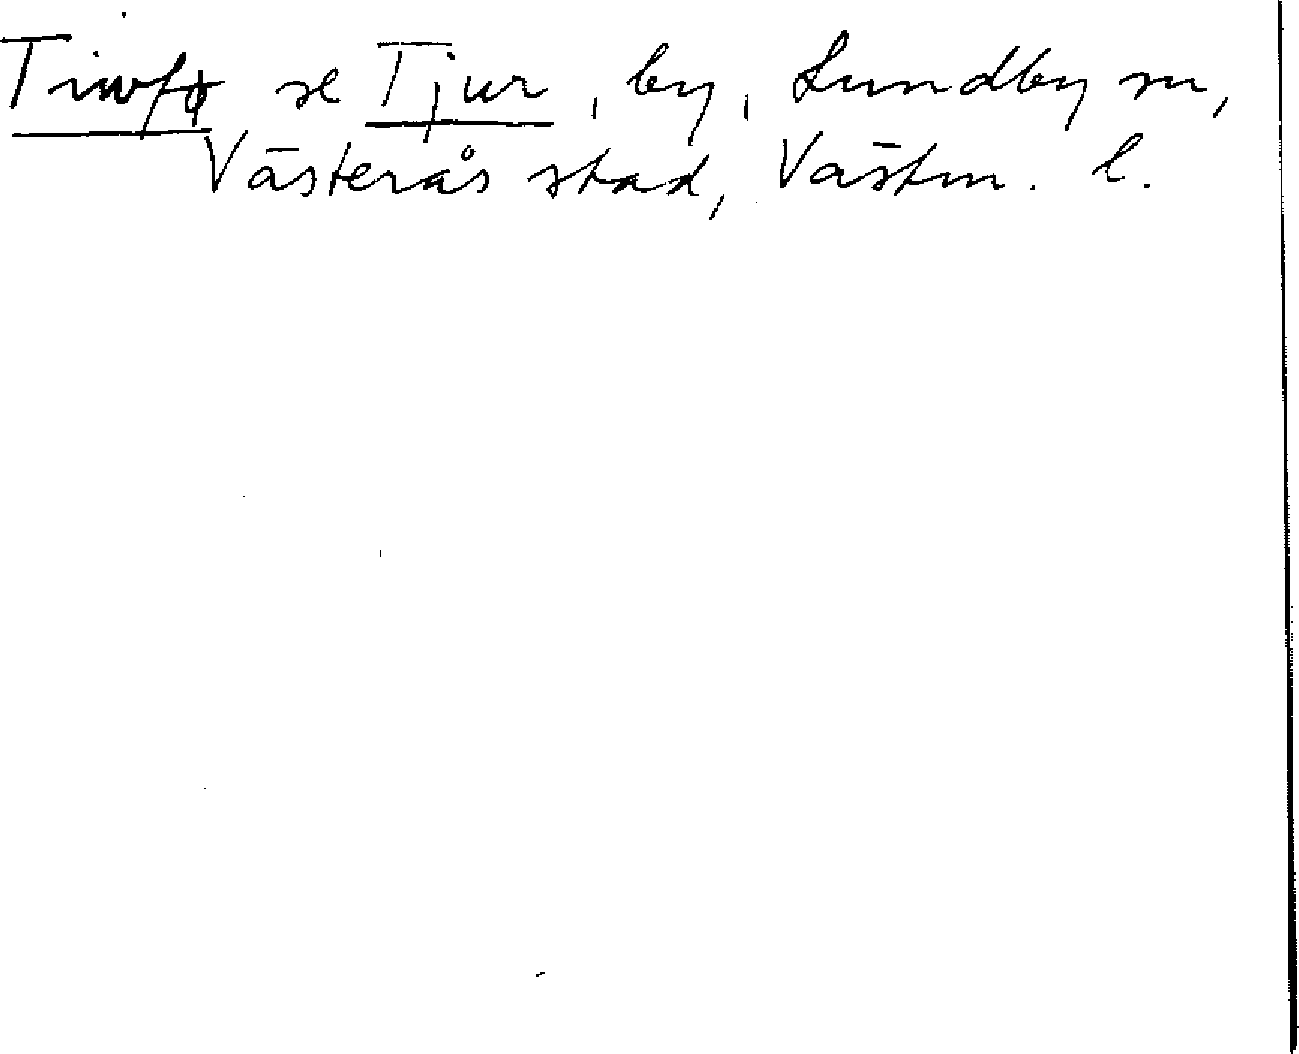 Tiwfø se Tjur, by, Lundby sn,
Västerås stad, Västm. l.